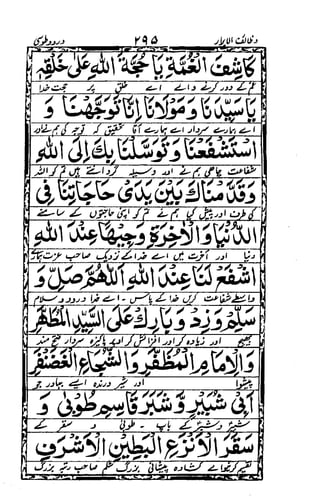 وظائف الابرار ۲۹۵ درود طوسی
كَاشِفَ الْغُمَّةِ يَا حُجَّةَ اللهِ عَلٰى خَلْقِهٖ
غم کے دور کرنے والے اے خلق پر حجت خدا
يَا سَيِّدَنَا وَمَوْلَانَا اِنَّا تَوَجَّهْنَا وَ
اے ہمارے سردار اے ہمارے آقا تحقیق کہ توجہ کی ہم نے اور
اسْتَشْفَعْنَا وَتَوَسَّلْنَا بِكَ اِلَى اللهِ
شفاعت چاہی ہم نے اور وسیلہ گردانتے ہیں تم کو اللہ
وَقَدَّمْنَاكَ بَيْنَ يَدَىْ حَاجَاتِنَا فِى
کی طرف اور پیش کیا ہم نے تم کو اپنی حاجتوں کے سامنے
الدُّنْيَا وَالْاٰخِرَةِ وَجِيْهًا عِنْدَ اللهِ
دنیا اور آخرت میں اے خدا کے نزدیک صاحب عزت ہمارے
اشْفَعْ لَنَا عِنْدَ اللهِ اَللّٰهُمَّ صَلِّ وَ
واسطے شفاعت کریں خدا کے پاس ۔ اے خدا درود و سلام
سَلِّمْ وَزِدْ وَبَارِكْ عَلَى السَّيِّدِ الْمُطَهَّرِ
بھیج اور زیادہ کر اور افزائش کر اوپر پاکیزہ سردار فتح مند
وَالْاِمَامِ الْمُظَفَّرِ وَالشُّجَاعِ الْغَضَنْفَرِ
پیشوا اور شیر درندہ ایسے بہادر جو
اَبِىْ شُبَيْرٍ وَشَبَرَ قَاسِمِ طُوْبٰى وَ
شبیر و شبر کے باپ ۔ طوبیٰ و سقر کے
سَقَرَ الْاَنْزَعِ الْبَطِيْنِ الْاَشْرَفِ
تقسیم کرنیوالے کشادہ پیشانی بزرگ شکم صاحب رتبہ بزرگ